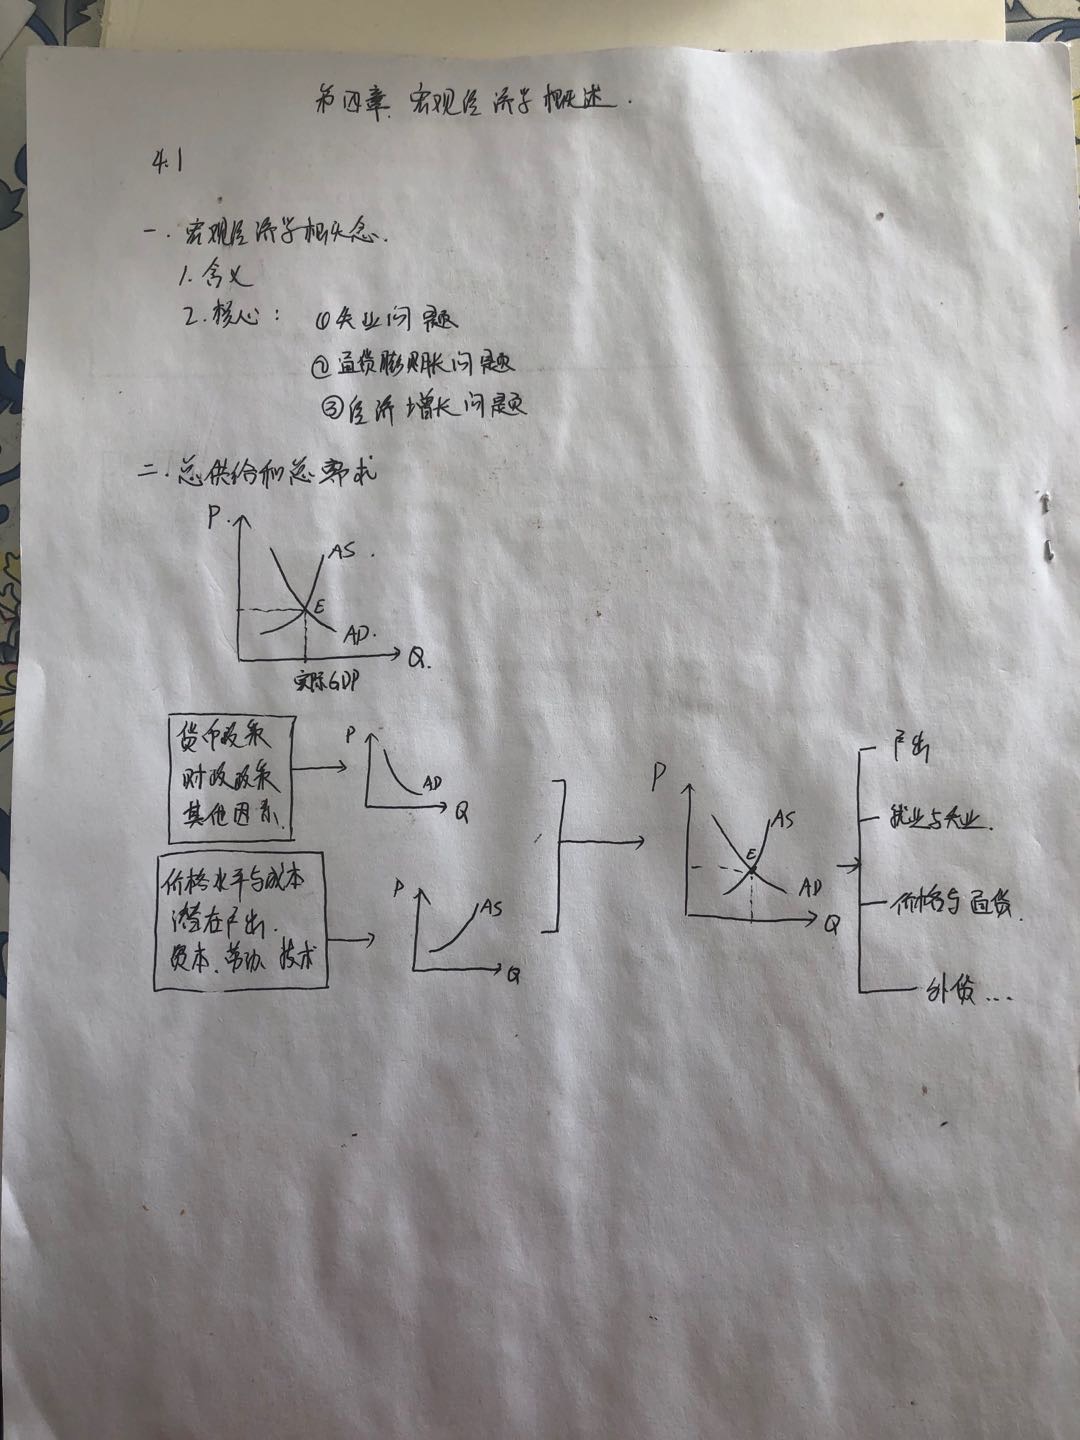 第四章 宏观经济学概述.
4.1
一. 宏观经济学概念.
1. 含义
2. 核心: ①失业问题
②通货膨胀问题
③经济增长问题
二. 总供给和总需求
P.
AS.
E
AD.
Q.
实际GDP
货币政策
财政政策
其他因素.
P
AD
Q
价格水平与成本
潜在产出.
资本、劳动、技术
P
AS
Q
P
AS
E
AD
Q
产出
就业与失业.
价格与通货.
外贸...